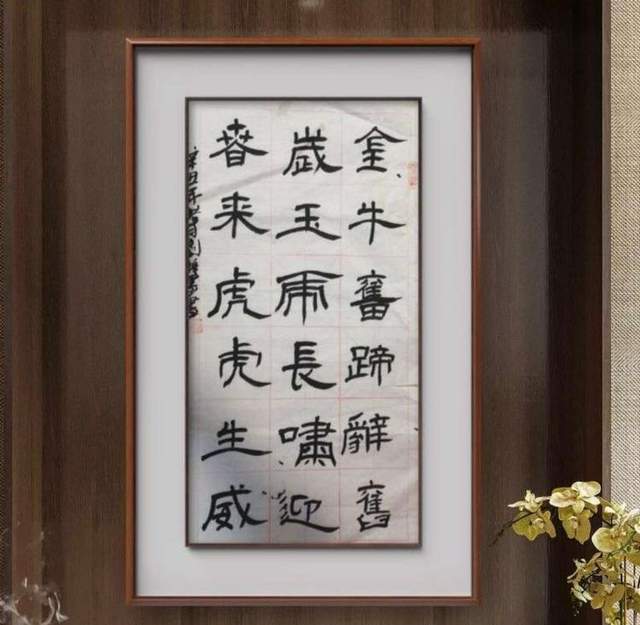 金牛奮蹄辭舊
歲玉虎長嘯迎
春来虎虎生威
辛丑年